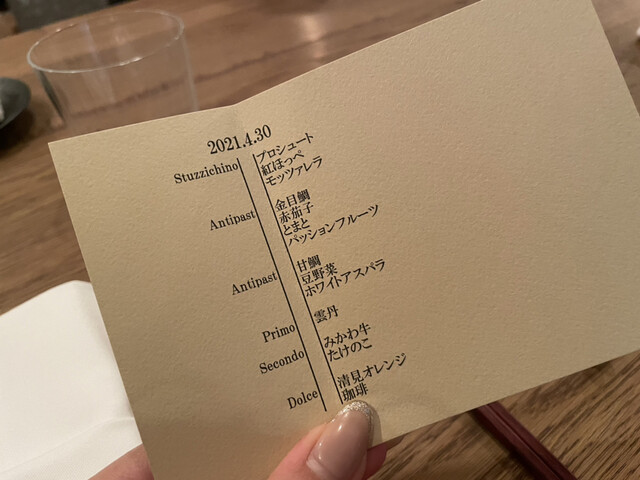 2021.4.30
Stuzzichino
プロシュート
紅ほっぺ
モッツァレラ
Antipast
金目鯛
赤茄子
とまと
パッションフルーツ
Antipast
甘鯛
豆野菜
ホワイトアスパラ
Primo
雲丹
Secondo
みかわ牛
たけのこ
Dolce
清見オレンジ
珈琲